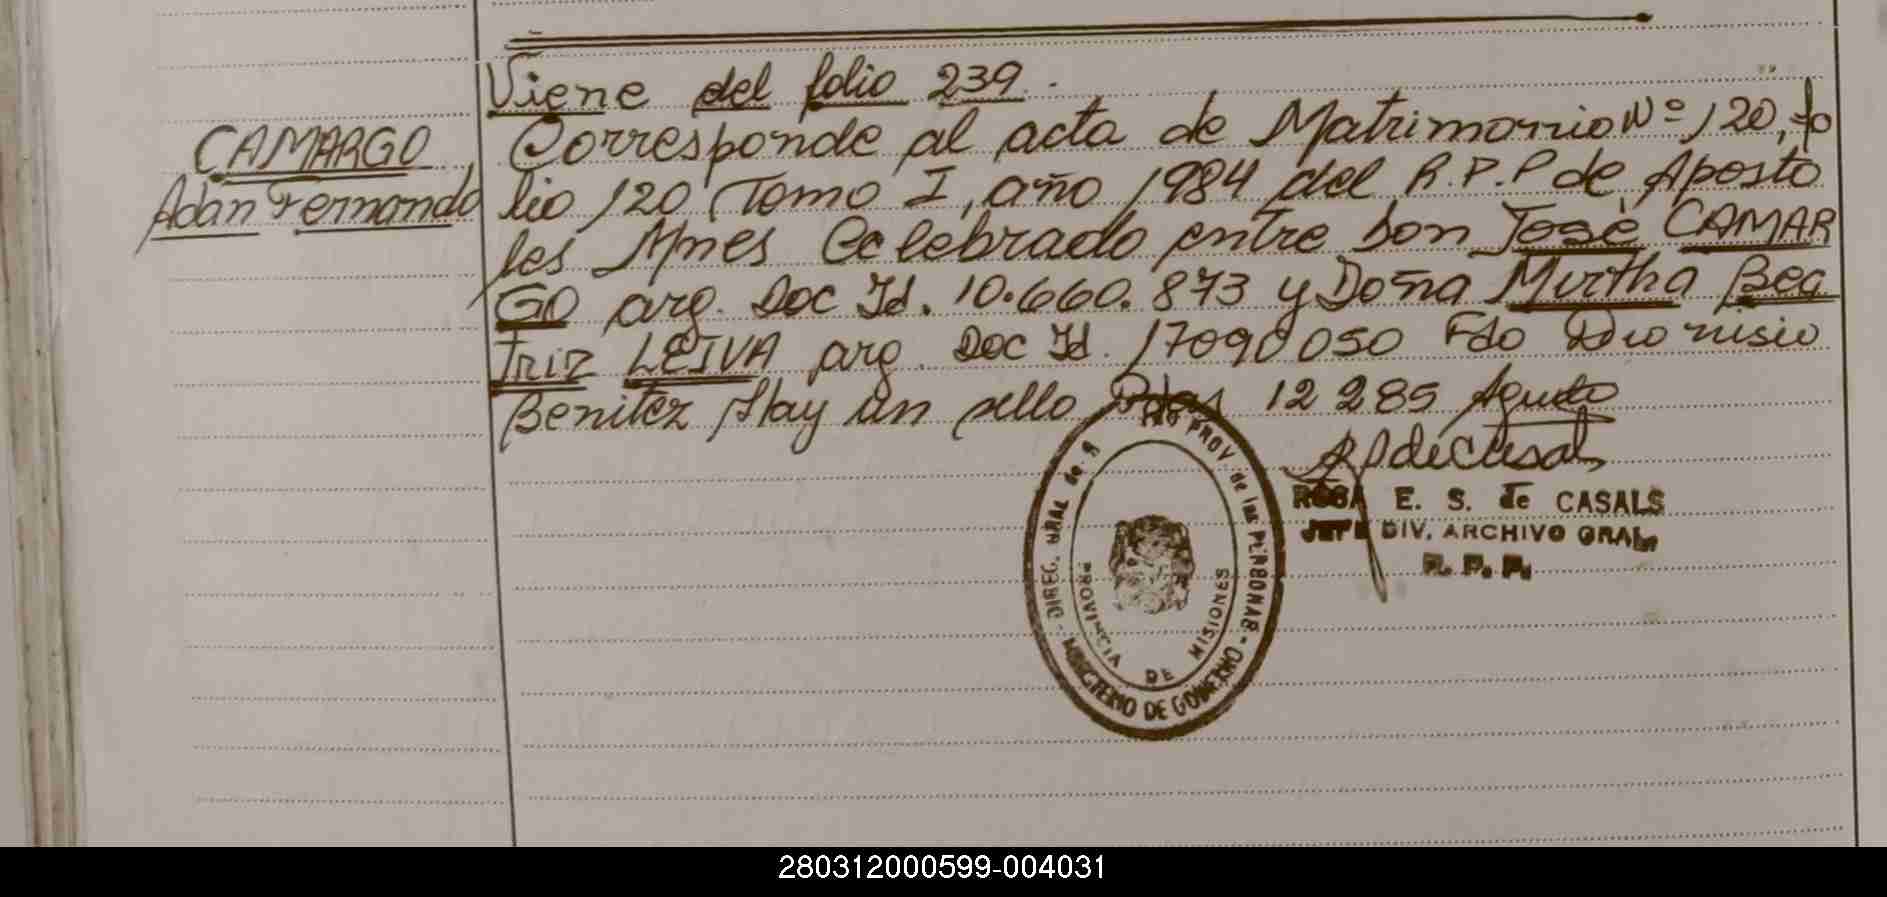 Viene del folio 239.
CAMARGO
Adan Fernando
Corresponde al acta de Matrimonio Nº 120, fo
lio 120 Tomo I, año 1984 del R.P.P de Aposto
les Mnes Celebrado entre Don José CAMAR
GO arg. Doc Id. 10.660.873 y Doña Mirtha Bea
triz LEIVA arg. Doc Id. 17090050 Fdo Dionisio
Benitez Hay un sello Pdas 12 2 85
ROSA E. S. de CASALS
JEFE DIV. ARCHIVO GRAL
R. P. P.
DIREC. GRAL de PROV de las PERSONAS -
MINISTERIO DE GOBIERNO -
PROVINCIA DE MISIONES
280312000599-004031